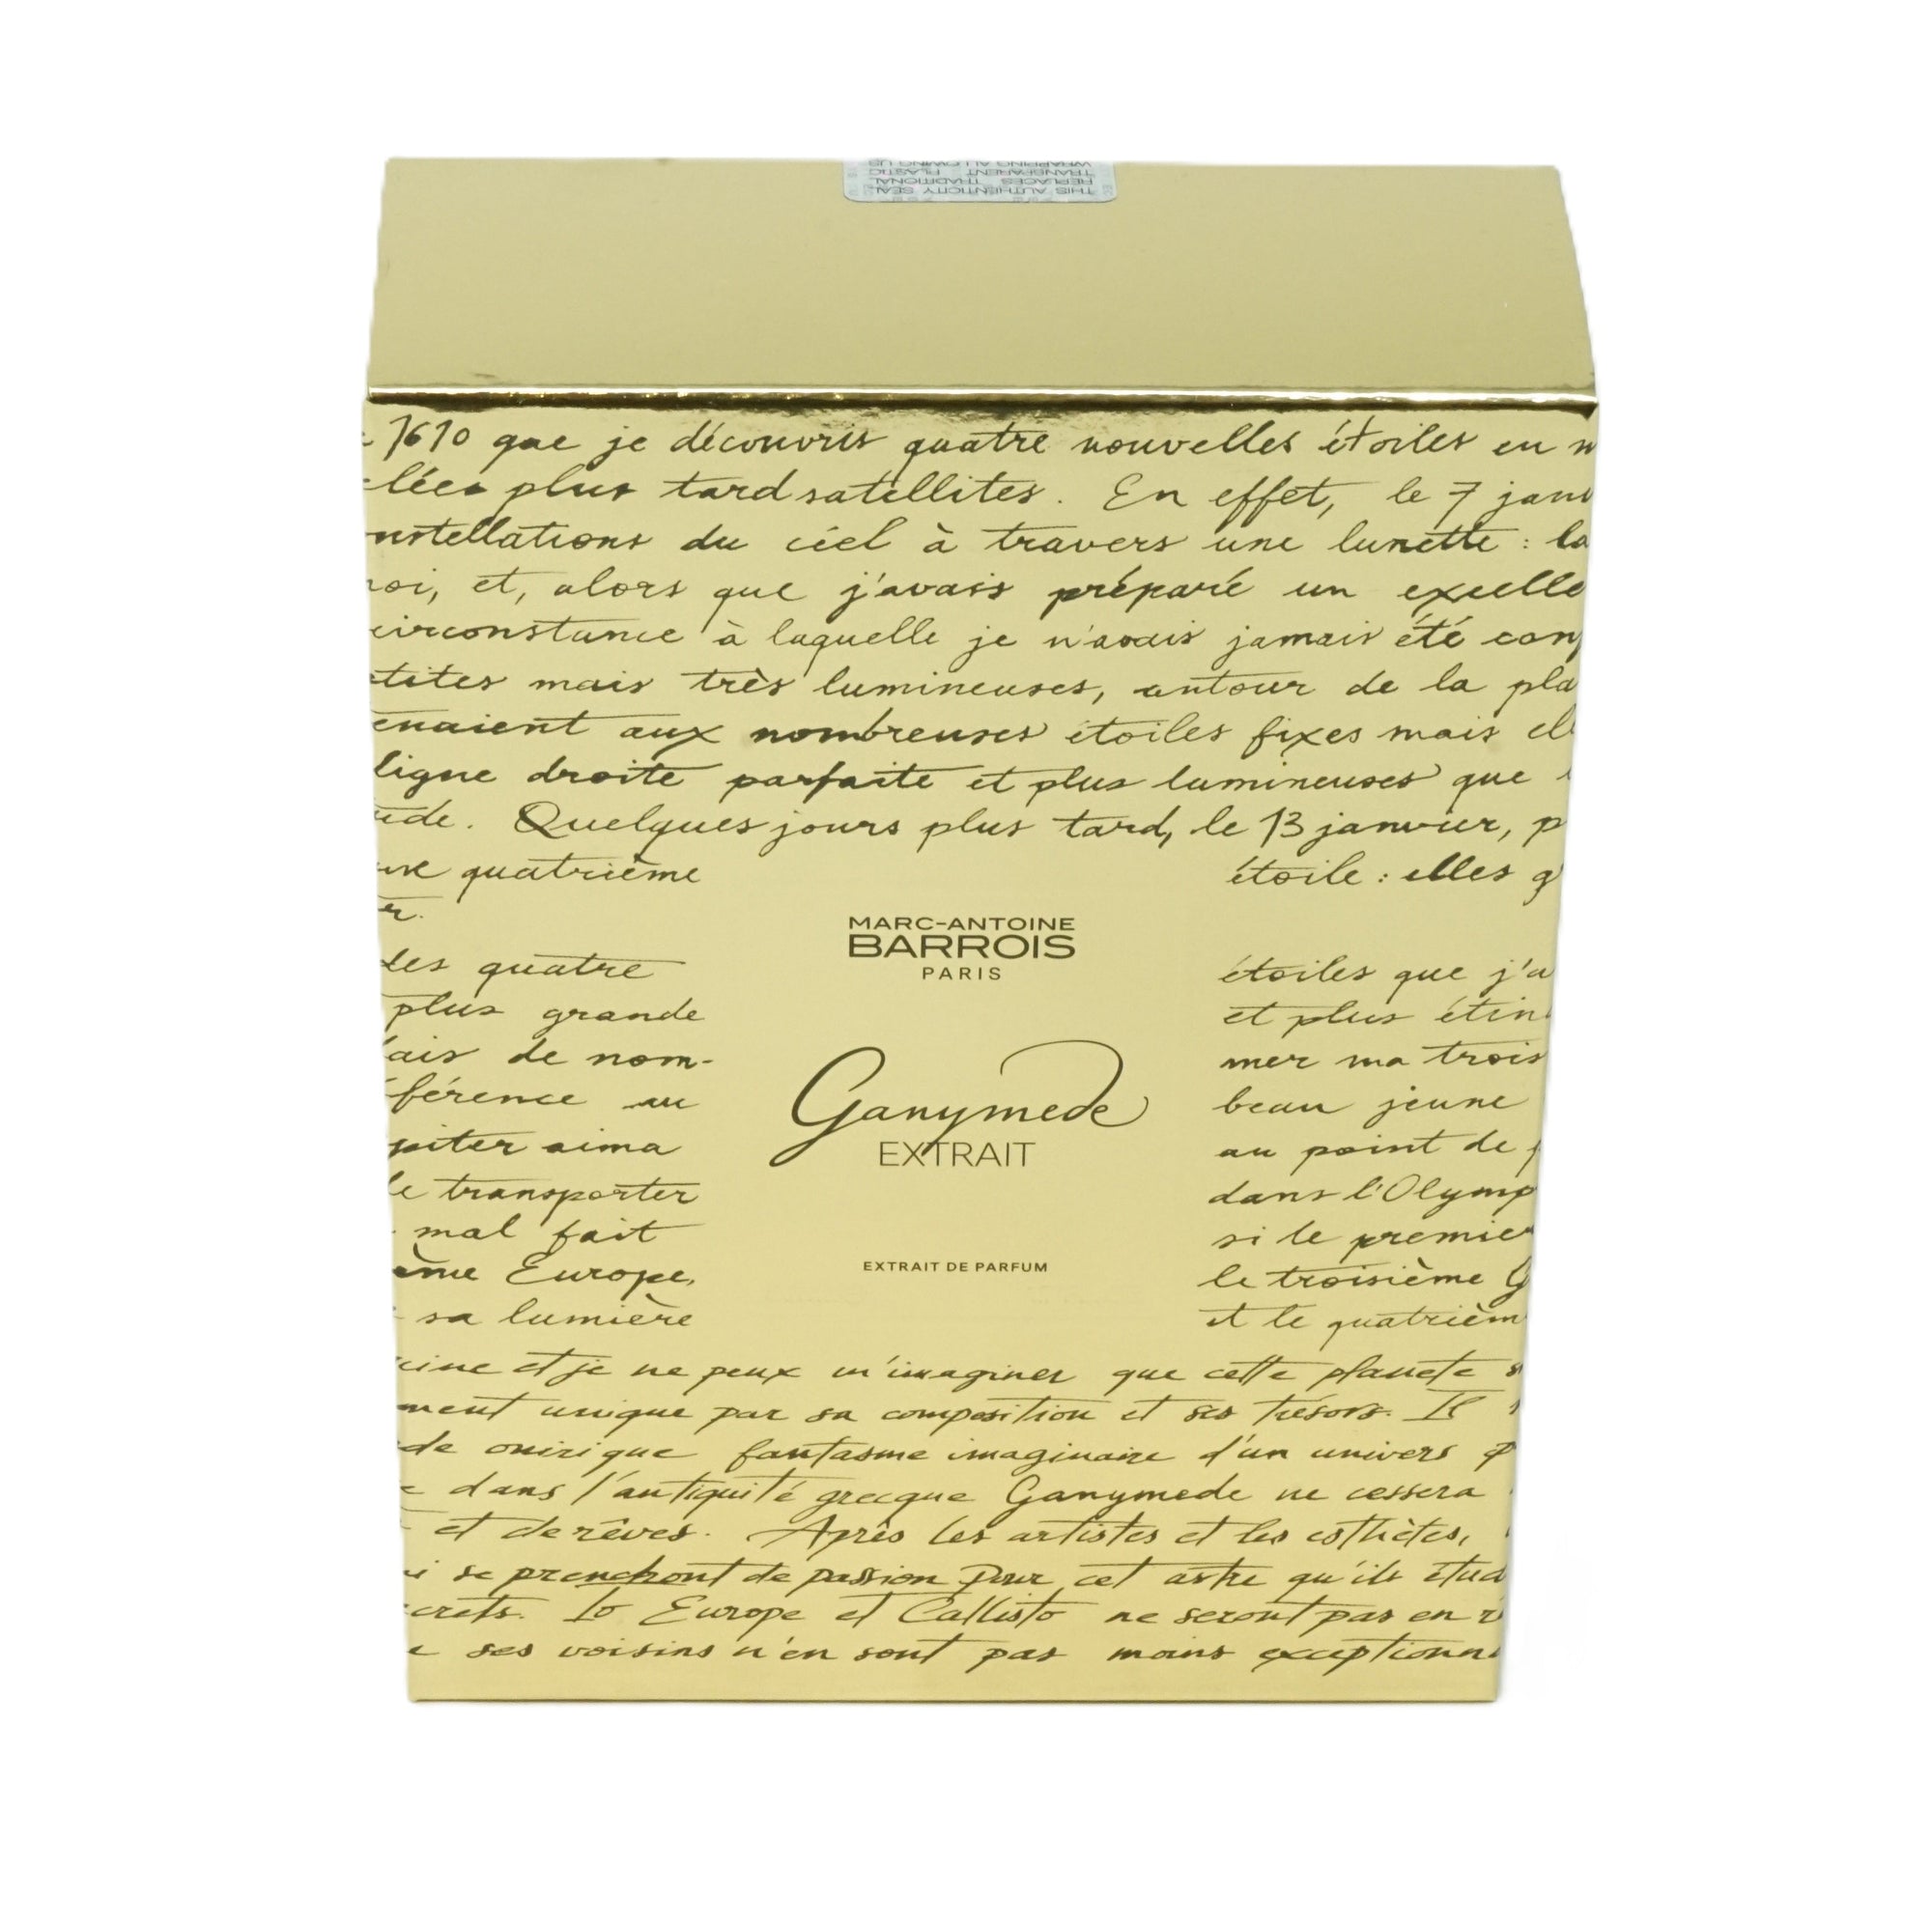 THIS AUTHENTICITY SEAL
REPLACES TRADITIONAL
TRANSPARENT PLASTIC
WRAPPING ALLOWING US
1610 que je découvris quatre nouvelles étoiles en
lées plus tard satellites. En effet, le 7 janv
nstellations du ciel à travers une lunette : la
oi, et, alors que j'avais préparé un excelle
circonstance à laquelle je n'avais jamais été con
tites mais très lumineuses, autour de la pla
enaient aux nombreuses étoiles fixes mais ell
ligne droite parfaite et plus lumineuses que
ude. Quelques jours plus tard, le 13 janvier, p
une quatrième étoile : elles
er.
des quatre étoiles que j'a
plus grande et plus étin
ais de nom- mer ma trois
férence au beau jeune
piter aima au point de
le transporter dans l'Olymp
mal fait si le premier
ème Europe, le troisième G
sa lumière et le quatrièm
MARC-ANTOINE
BARROIS
PARIS
Ganymede
EXTRAIT
EXTRAIT DE PARFUM
cine et je ne peux m'imaginer que cette planete
ment unique par sa composition et ses trésors. Il
de onirique fantasme imaginaire d'un univers
dans l'antiquité grecque Ganymede ne cessera
et de rêves. Après les artistes et les esthètes,
i se prendront de passion pour cet astre qu'ils étud
crets. Io Europe et Callisto ne seront pas en
ses voisins n'en sont pas moins exceptionn